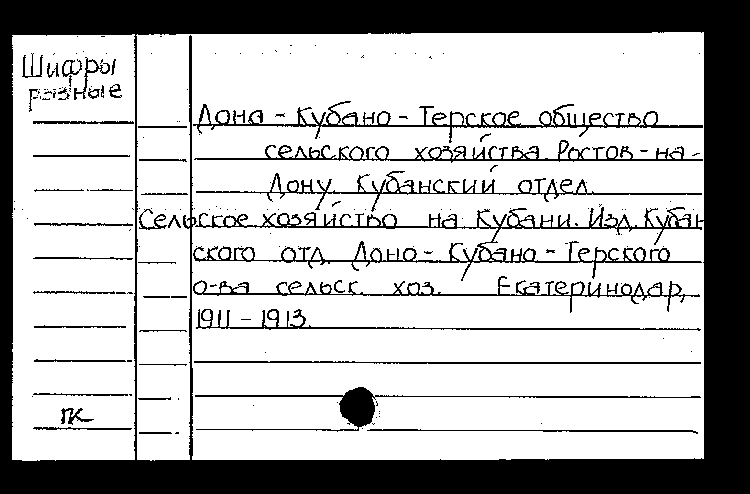 Шифры
разные
Дона - Кубано - Терское общество
сельского хозяйства. Ростов - на -
Дону. Кубанский отдел.
Сельское хозяйство на Кубани. Изд. Кубан
ского отд. Доно - Кубано - Терского
о-ва сельск. хоз. Екатеринодар,
1911 - 1913.
ПК